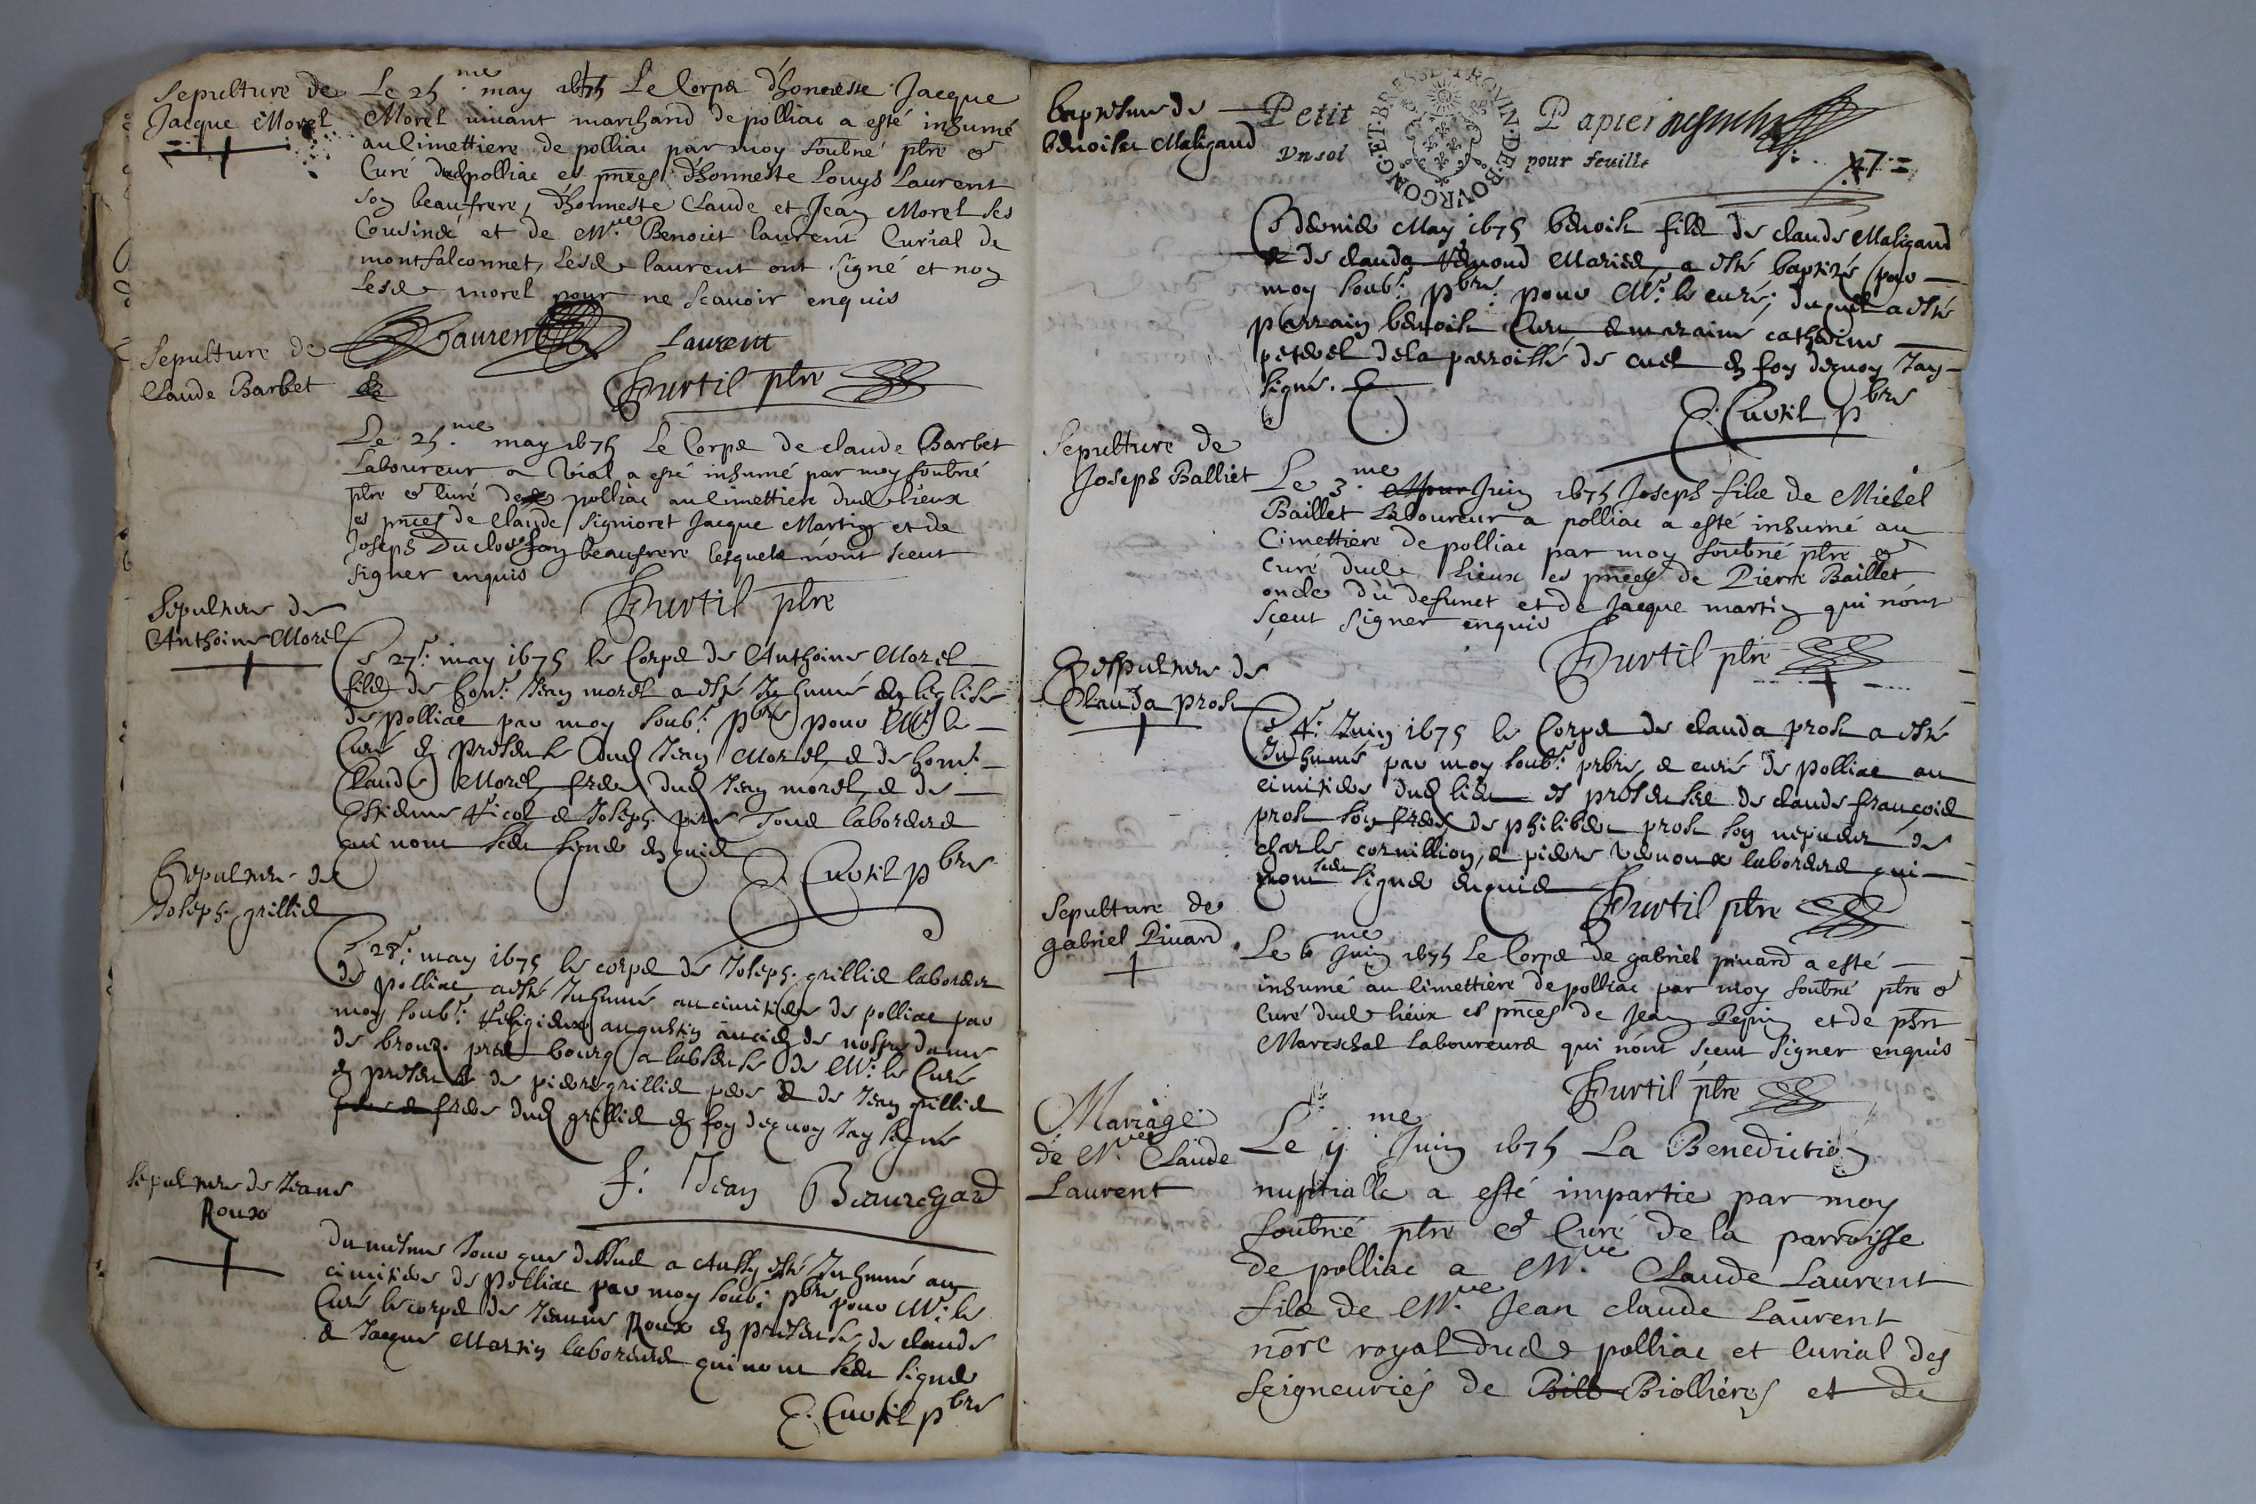 Sepulture de
Jacque Morel
Le 25.me may 1675 Le Corps d'honneste Jacque
Morel vivant marchand de polliac a esté inhumé
au Cimettiere de polliac par moy soubné ptre et
Curé dud polliac es pnces d'honneste Louys Laurent
son beaufrere, d'honneste Claude et Jean Morel ses
Cousins et de Mr. Benoict laurent Curial de
montfalconnet, lesd laurent ont signé et non
lesd morel pour ne scavoir enquis
Laurent Laurent
Curtil ptre
Sepulture de
Claude Barbet
Le 25.me may 1675 Le Corps de claude Barbet
Laboureur a Vial a esté inhumé par moy soubné
ptre et curé de polliac au Cimettiere dud lieux
es pnces de Claude Signioret Jacque Martin et de
Joseph Duclos son beaufrere lesquels n'ont sceut
signer enquis
Curtil ptre
Sepulture de
Anthoine Morel
Le 27e may 1675 le Corps de Anthoine Morel
fils de hon. Jean morel a esté Inhumé en leglise
de polliac par moy soub. pbre pour Mr le
Curé en presence dud Jean Morel, et de hon.
Claude Morel, frere dud Jean morel, et de
Estienne et Joseph tous laboreurs
qui nont sceu signer enquis
Curtil pbre
Sepulture de
Joseph grillie
Le 28e may 1675 le corps de Joseph grillie laboreur
de polliac a esté Inhumé au cimitiere de polliac par
moy soub. Religieux augustin ancien de nostre dame
de brou pres bourg a labsence de Mr le Curé
en presence de pierre grillie pere et de Jean grillie
frere dud grillie en foy dequoy Jay signé
f. Jean Beauregard
Sepulture de Jeane
Roux
Du mesme Jour que dessus a Aussy esté Inhumé au
cimitiere de Polliac par moy soub. pbre pour Mr le
Curé le corps de Jeanne Roux en presence de claude
et Jacque Martin laboreurs qui nont sceu signer
Curtil pbre
baptesme de
benoist Maligand
Petit Papier
Un sol pour feuille
BOURGONG. ET. BRESSE
47
Le dernier May 1675 benoist fils de claude Maligand
et de clauda Maries, a esté baptisé par
moy soub. pbre pour Mr. le curé; duquel a esté
parrain benoist et marraine catherine
de la parroisse de en foy dequoy Jay
signé.
Curtil pbre
Sepulture de
Joseph Balliet
Le 3.me Juin 1675 Joseph fils de Michel
Baillet Laboureur a polliac a esté inhumé au
Cimettiere de polliac par moy soubné ptre et
curé dud lieux es pnces de Pierre Baillet
oncle du defunct et de Jacque martin qui n'ont
sçeut signer enquis
Curtil ptre
Sepulture de
Clauda prost
Le 4e Juin 1675 le Corps de clauda prost a esté
Inhumé par moy soub. prbre et curé de Polliac au
cimitiere dud lieu es presences de claude françois
prost son frere, de philibert prost son nepveur de
charle cornillion, et pierre laboreurs qui
nont sceu signer enquis
Curtil ptre
Sepulture de
gabriel Pivard
Le 6 me Juin 1675 Le Corps de gabriel pivard a esté
inhumé au Cimettiere de polliac par moy soubné ptre et
Curé dud lieux es pnces de Jean Pepin et de phrt
Mareschal Laboureurs qui n'ont sçeut signer enquis
Curtil ptre
Mariage
de Mre Claude
Laurent
Le 11 me Juin 1675 La Benediction
nuptialle a esté impartie par moy
soubné ptre et Curé de la parroisse
de polliac a Mre Claude Laurent
fils de Mre Jean claude Laurent
nore royal dud polliac et Curial des
seigneuries de Biollieres et de